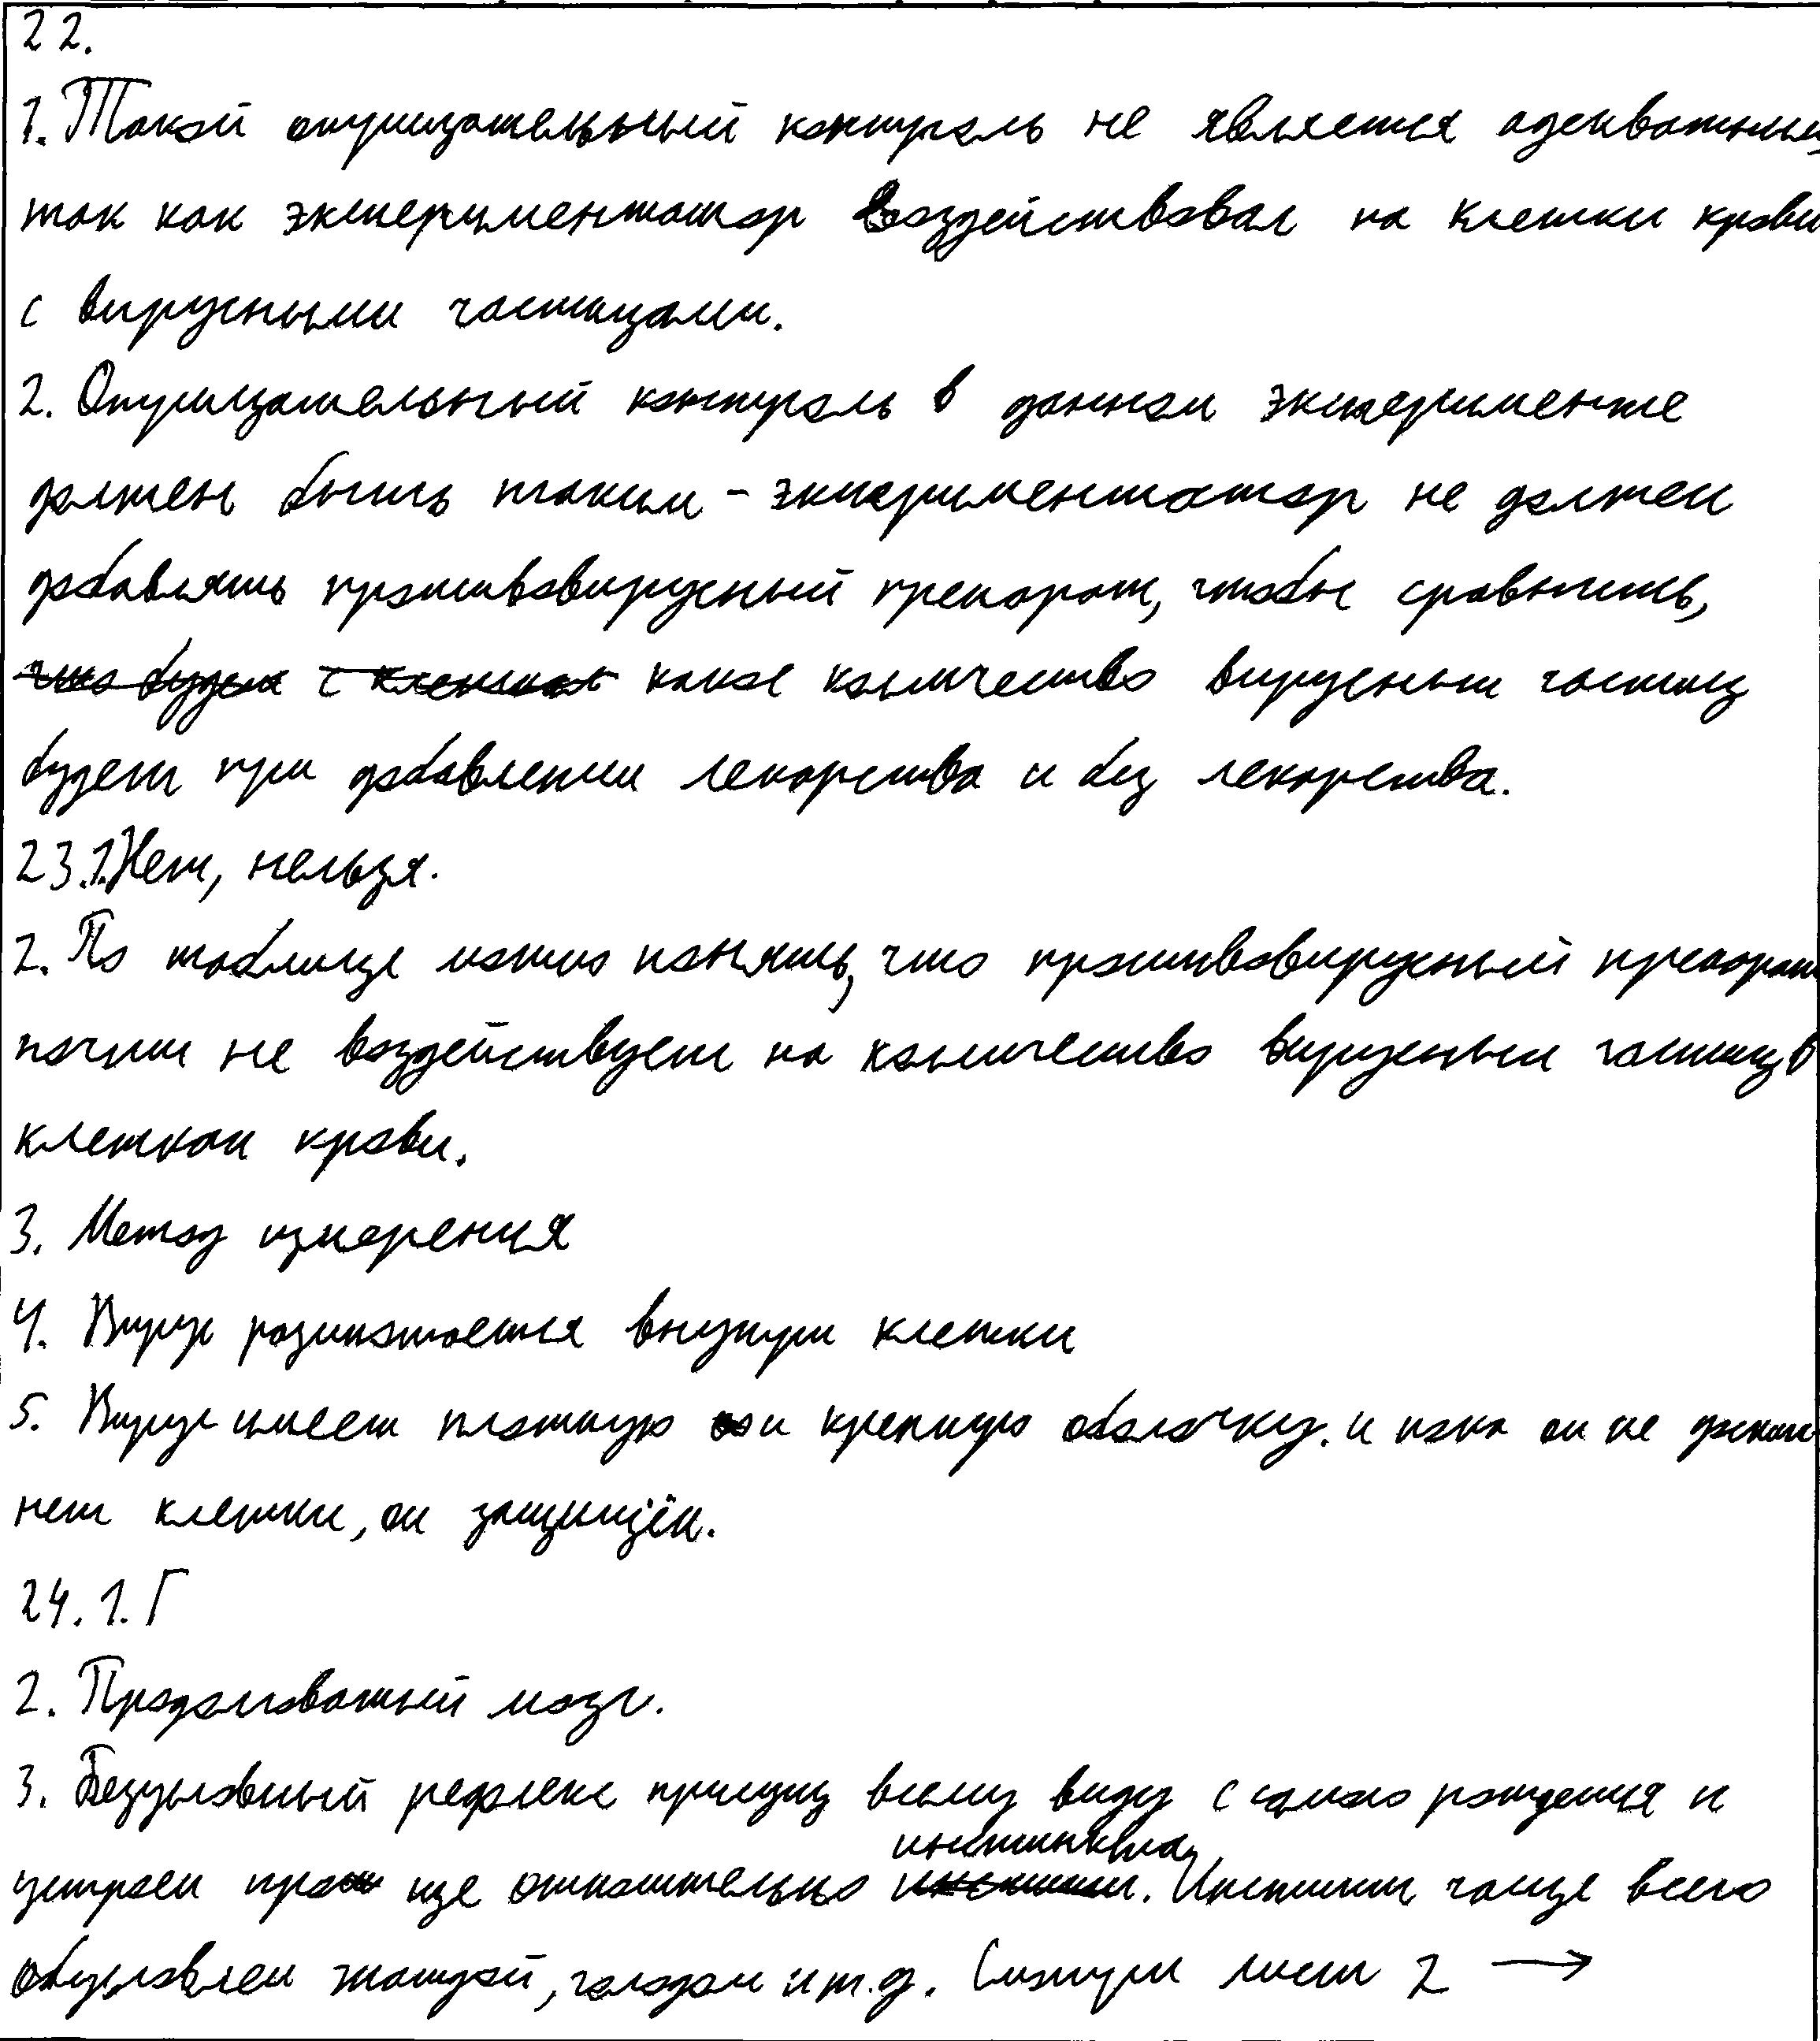 22.
1. Такой отрицательный контроль не является адекватным,
так как экспериментатор воздействовал на клетки крови
с вирусными частицами.
2. Отрицательный контроль в данном эксперименте
должен быть таким - экспериментатор не должен
добавлять противовирусный препарат, чтобы сравнить,
какое количество вирусных частиц
будет при добавлении лекарства и без лекарства.
23.1. Нет, нельзя.
2. По таблице можно понять, что противовирусный препарат
почти не воздействует на количество вирусных частиц в
клетках крови.
3. Метод измерения
4. Вирус размножается внутри клетки
5. Вирус имеет плотную и крепкую оболочку. и пока он не достиг
нет клетки, он защищён.
24. 1. Г
2. Продолговатый мозг.
3. Безусловный рефлекс присущ всему виду с самого рождения и
устроен проще относительно инстинкта. Инстинкт чаще всего
обусловлен жаждой, голодом и т.д. Смотри лист 2 →